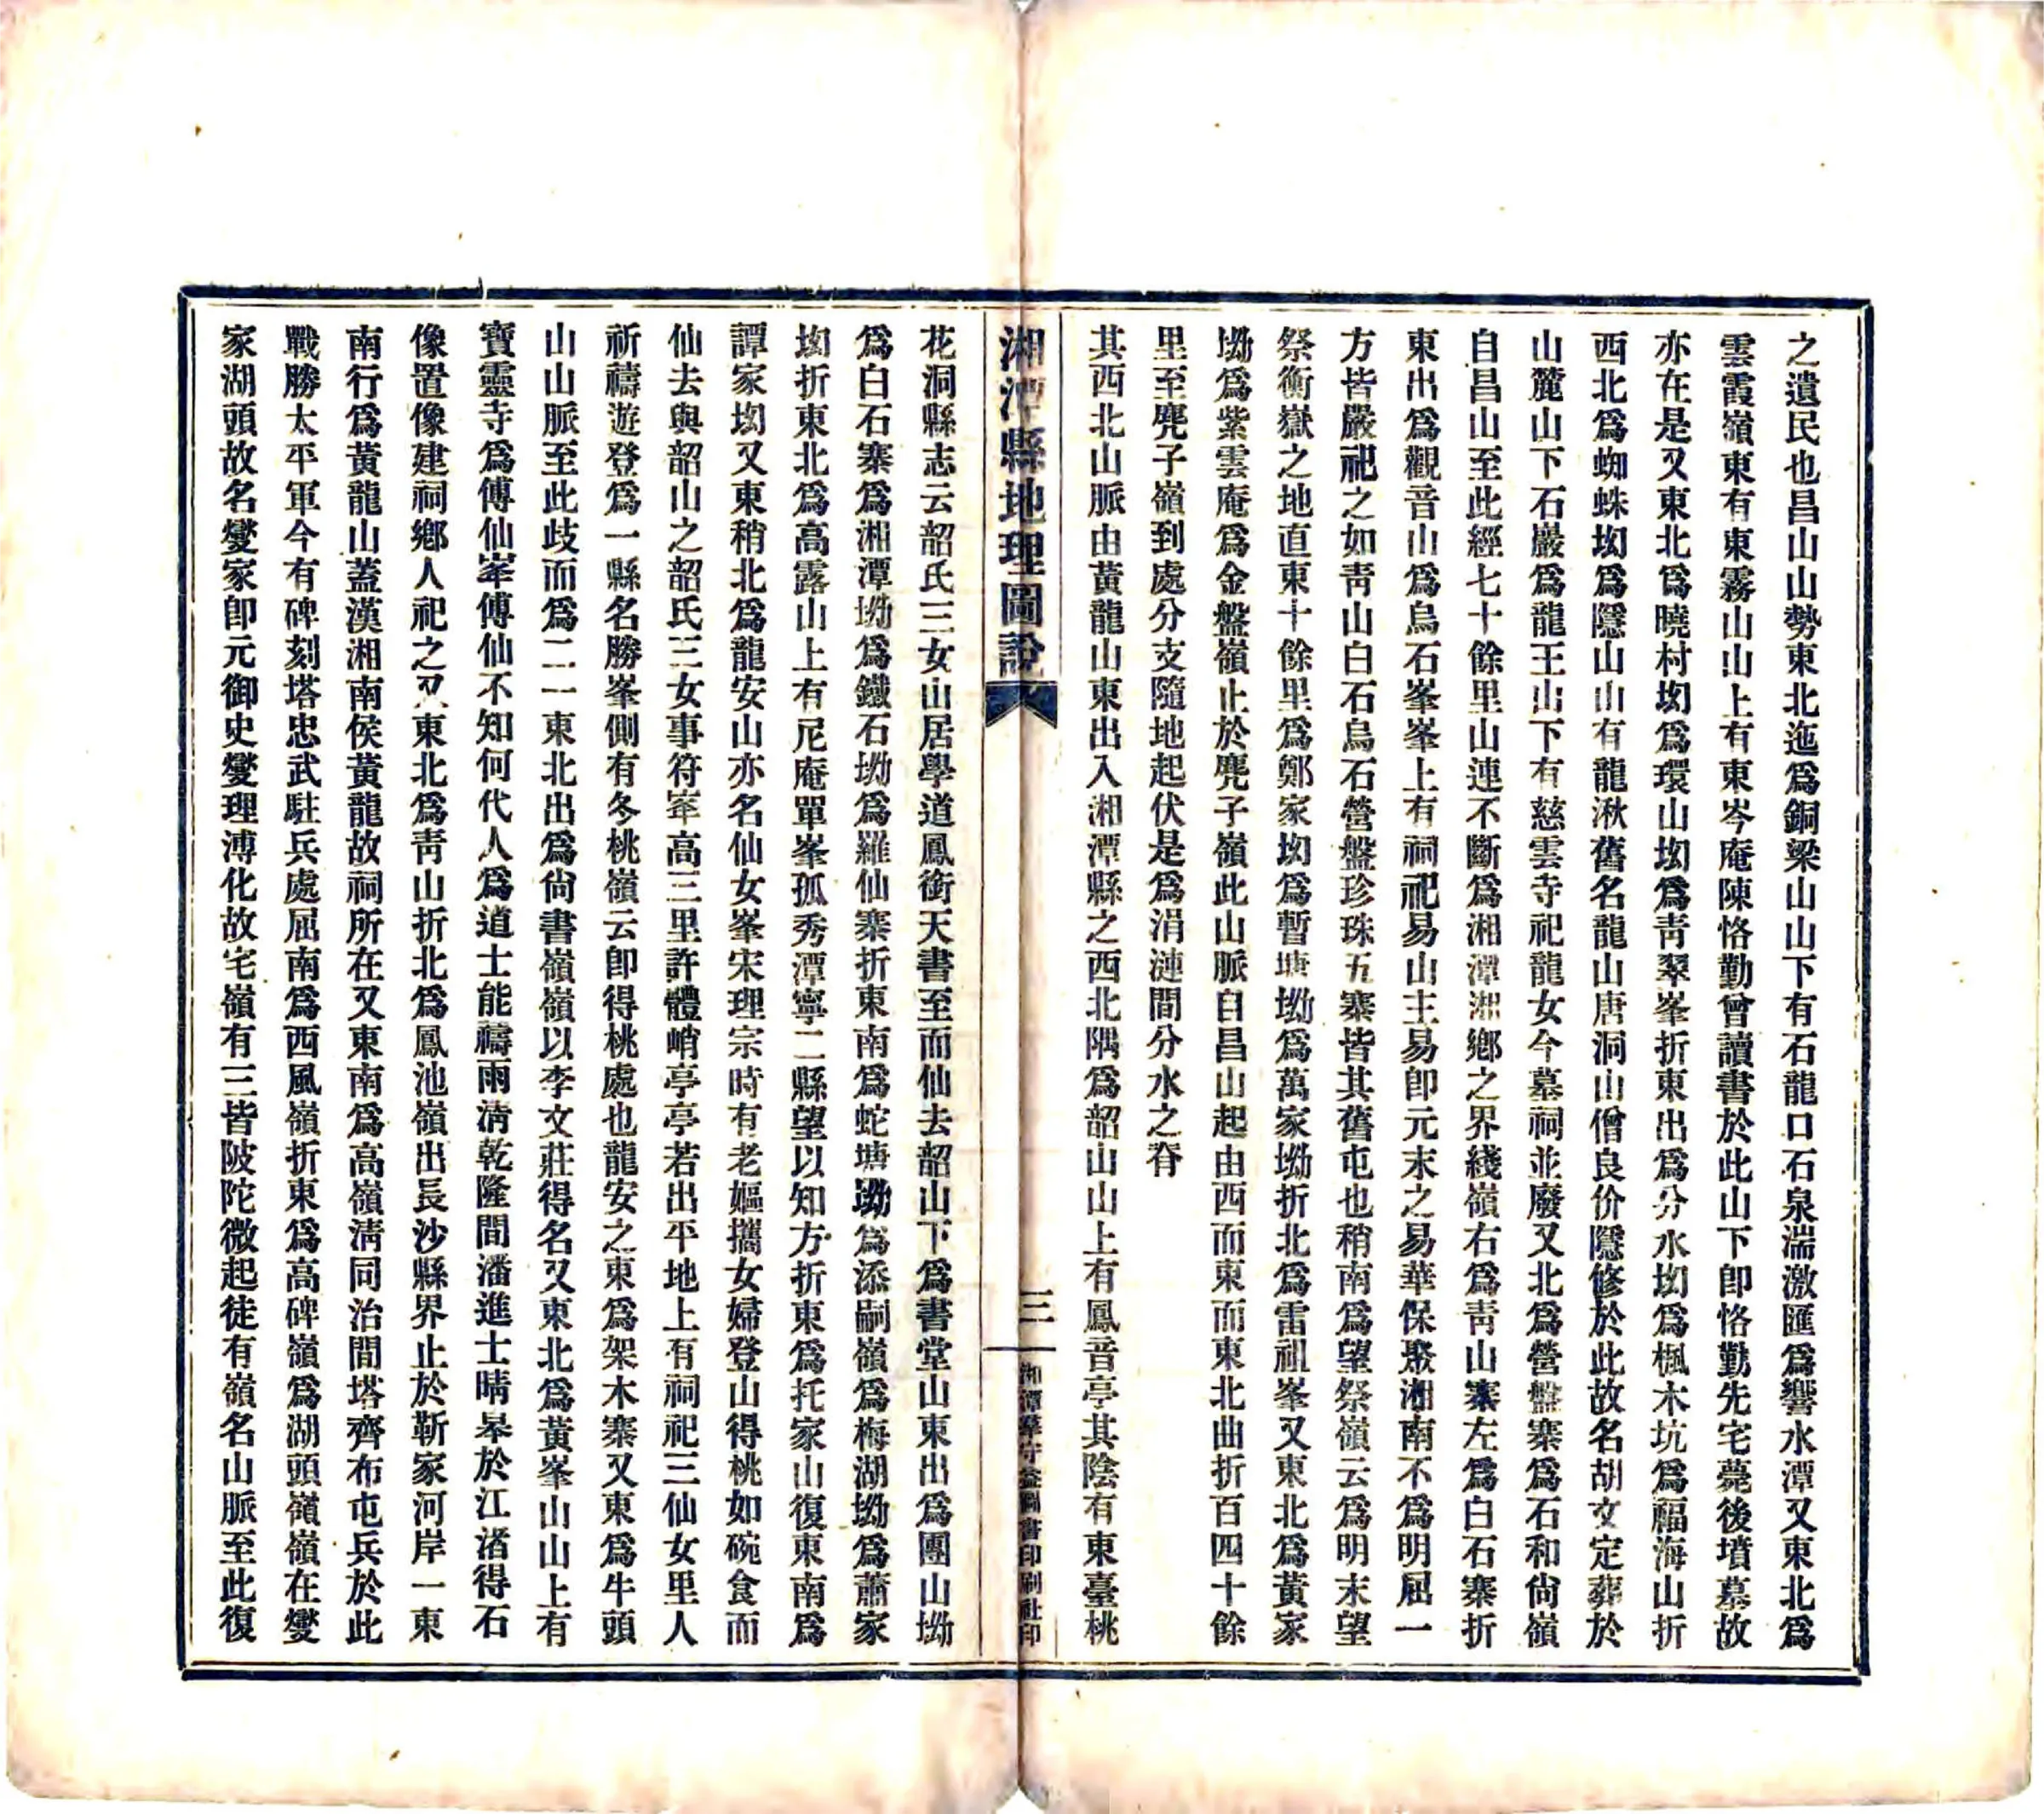 之遺民也昌山山勢東北迤爲銅梁山山下有石龍口石泉湍激匯爲響水潭又東北爲
雲霞嶺東有東霧山山上有東岑庵陳恪勤曾讀書於此山下卽恪勤先宅薨後墳墓故
亦在是又東北爲曉村坳爲環山坳爲靑翠峯折東出爲分水坳爲楓木坑爲福海山折
西北爲蜘蛛坳爲隱山山有龍湫舊名龍山唐洞山僧良价隱修於此故名胡文定葬於
山麓山下石巖爲龍王山下有慈雲寺祀龍女今墓祠並廢又北爲營盤寨爲石和尙嶺
自昌山至此經七十餘里山連不斷爲湘潭湘鄉之界綫嶺右爲靑山寨左爲白石寨折
東出爲觀音山爲烏石峯峯上有祠祀易山主易卽元末之易華保聚湘南不爲明屈一
方皆嚴祀之如靑山白石烏石營盤珍珠五寨皆其舊屯也稍南爲望祭嶺云爲明末望
祭衡嶽之地直東十餘里爲鄭家坳爲暫塘坳爲萬家坳折北爲雷祖峯又東北爲黃家
坳爲紫雲庵爲金盤嶺止於凳子嶺此山脈自昌山起由西而東而東北曲折百四十餘
里至凳子嶺到處分支隨地起伏是爲涓漣間分水之脊
其西北山脈由黃龍山東出入湘潭縣之西北隅爲韶山山上有鳳音亭其陰有東臺桃
湘潭縣地理圖說
三
湘潭 守益圖書印刷社印
花洞縣志云韶氏三女山居學道鳳銜天書至而仙去韶山下爲書堂山東出爲團山坳
爲白石寨爲湘潭坳爲鐵石坳爲羅仙寨折東南爲蛇塘坳爲添嗣嶺爲梅湖坳爲蕭家
坳折東北爲高露山上有尼庵單峯孤秀潭寧二縣望以知方折東爲托家山復東南爲
譚家坳又東稍北爲龍安山亦名仙女峯宋理宗時有老嫗攜女婦登山得桃如碗食而
仙去與韶山之韶氏三女事符峯高三里許體峭亭亭若出平地上有祠祀三仙女里人
祈禱遊登爲一縣名勝峯側有冬桃嶺云卽得桃處也龍安之東爲架木寨又東爲牛頭
山山脈至此歧而爲二一東北出爲尙書嶺嶺以李文莊得名又東北爲黃峯山山上有
寶靈寺爲傅仙峯傅仙不知何代人爲道士能禱雨淸乾隆間潘進士晴皋於江渚得石
像置像建祠鄉人祀之又東北爲靑山折北爲鳳池嶺出長沙縣界止於靳家河岸一東
南行爲黃龍山蓋漢湘南侯黃龍故祠所在又東南爲高嶺淸同治間塔齊布屯兵於此
戰勝太平軍今有碑刻塔忠武駐兵處屈南爲西風嶺折東爲高碑嶺爲湖頭嶺嶺在燮
家湖頭故名燮家卽元御史燮理溥化故宅嶺有三皆陂陀微起徒有嶺名山脈至此復